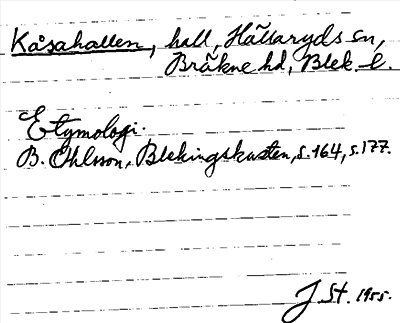 Kåsahallen, hall, Hällaryds sn,
Bräkne hd, Blek. l.
Etymologi.
B. Ohlsson, Blekingskusten, s. 164, s. 177.
J St. 1955.